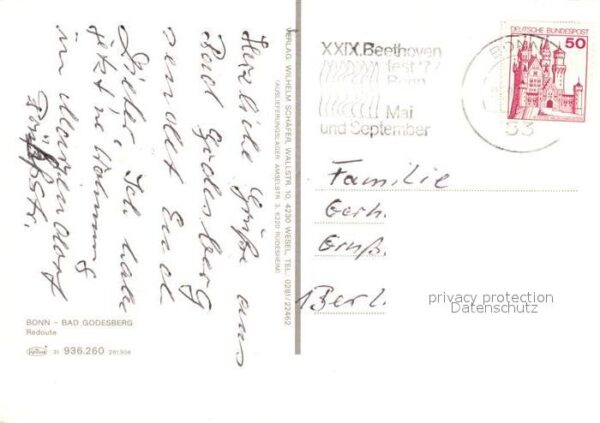 Herzliche Grüße aus
Bad Godesberg
sendet Euch
Dieter. Ich habe
jetzt ne Wohnung
in
str.
BONN - BAD GODESBERG
Redoute
31 936.260 281304
VERLAG: WILHELM SCHÄFER, WALLSTR. 10, 4230 WESEL, TEL. 0281/22462
(AUSLIEFERUNGSLAGER: AMSELSTR. 3, 6220 RÜDESHEIM)
XXIX. Beethoven
fest '77
Bonn
Mai
und September
BONN
53
DEUTSCHE BUNDESPOST
50
Familie
Gerh.
1 Berl.
privacy protection
Datenschutz